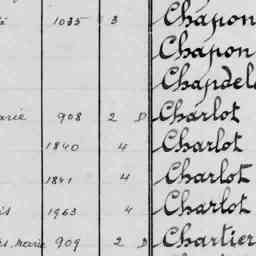 1035 3 Chapon
Chapon
Chapdel
arie 908 2 D Charlot
1840 4 Charlot
1841 4 Charlot
is 1963 4 Charlot
Marie 909 2 D Chartier